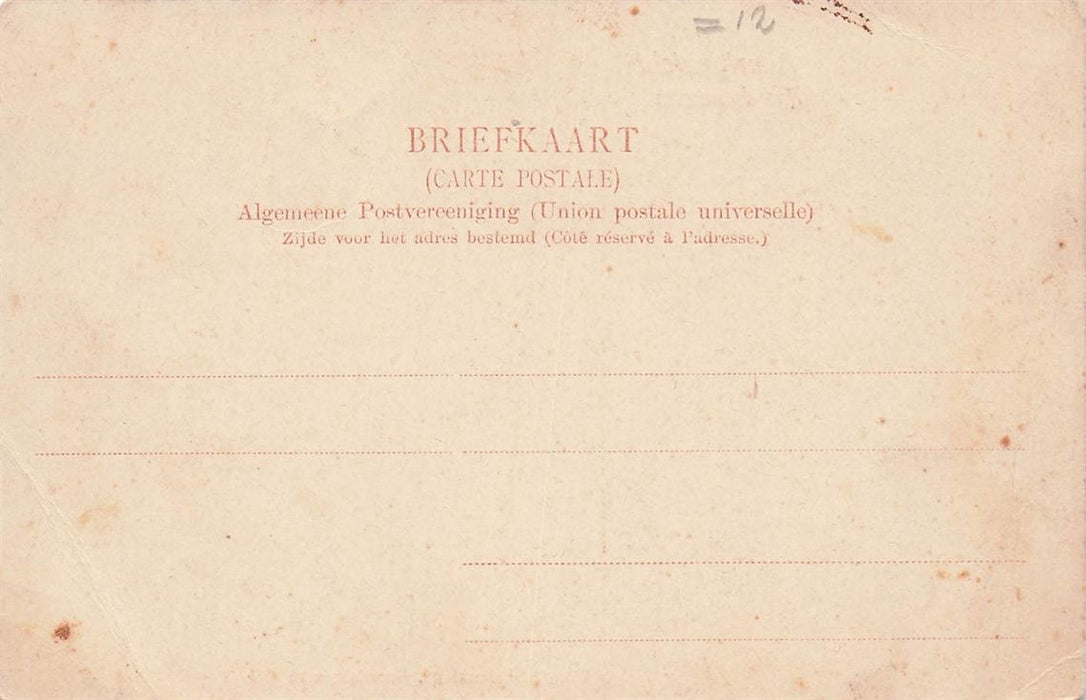 = 12
BRIEFKAART
(CARTE POSTALE)
Algemeene Postvereeniging (Union postale universelle)
Zijde voor het adres bestemd (Côté réservé à l'adresse.)